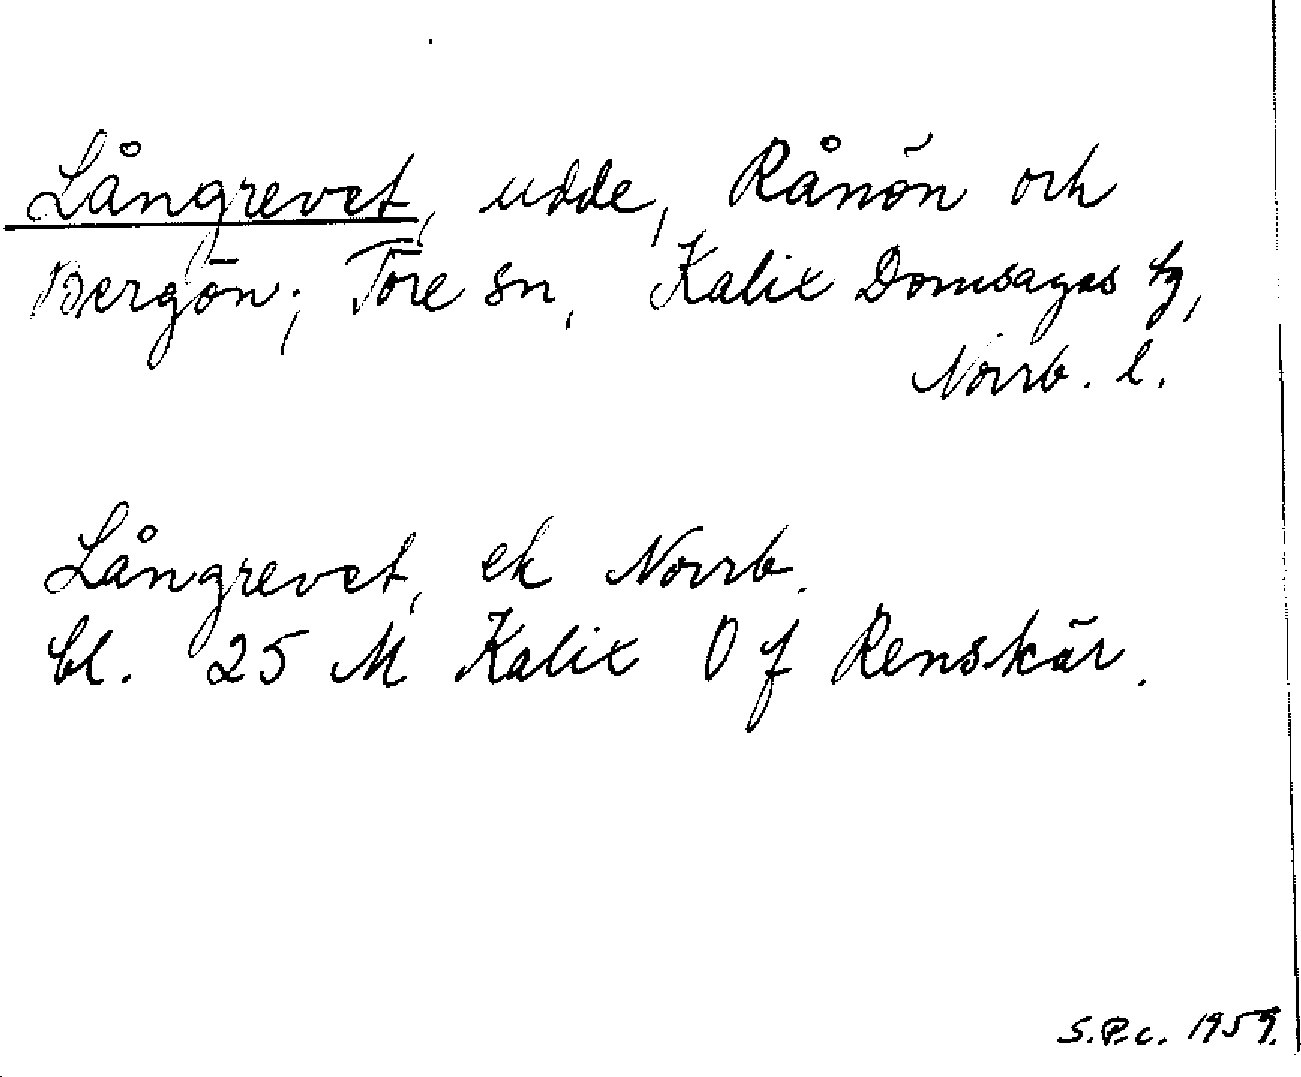 Långrevet, udde, Rånön och
Bergön; Töre sn, Kalix Domsagas tg,
Norrb. l.
Långrevet, ek Norrb.
bl. 25 M Kalix O f Renskär.
S.P.c. 1959.